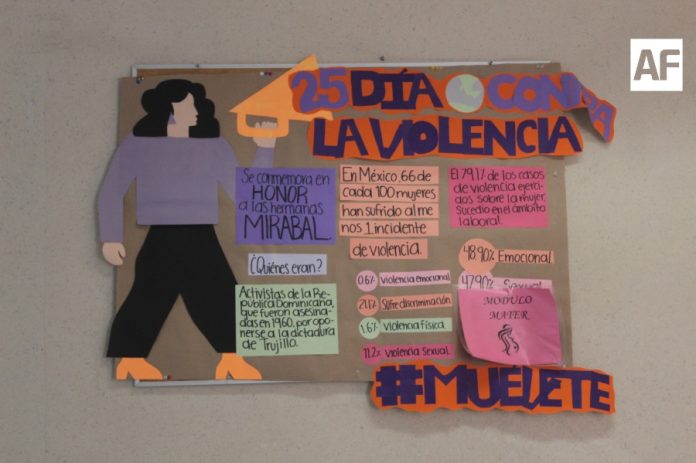 AF
25 DÍA CONTRA
LA VIOLENCIA
Se conmemora en
HONOR
a las hermanas
MIRABAL.
¿Quiénes eran?
Activistas de la Re-
pública Dominicana,
que fueron asesina-
das en 1960, por opo-
nerse a la dictadura
de Trujillo.
En México, 66 de
cada 100 mujeres
han sufrido al me
nos 1 incidente
de violencia.
0.6% violencia emocional
21.1% Sufre discriminación
1.6% Violencia física
11.2% Violencia Sexual
El 79.1% de los casos
de violencia ejerci-
dos sobre la mujer,
Sucedio en el ámbito
laboral.
48.90% Emocional
47.90% Sexual
MODULO
MATER
#MUÉVETE